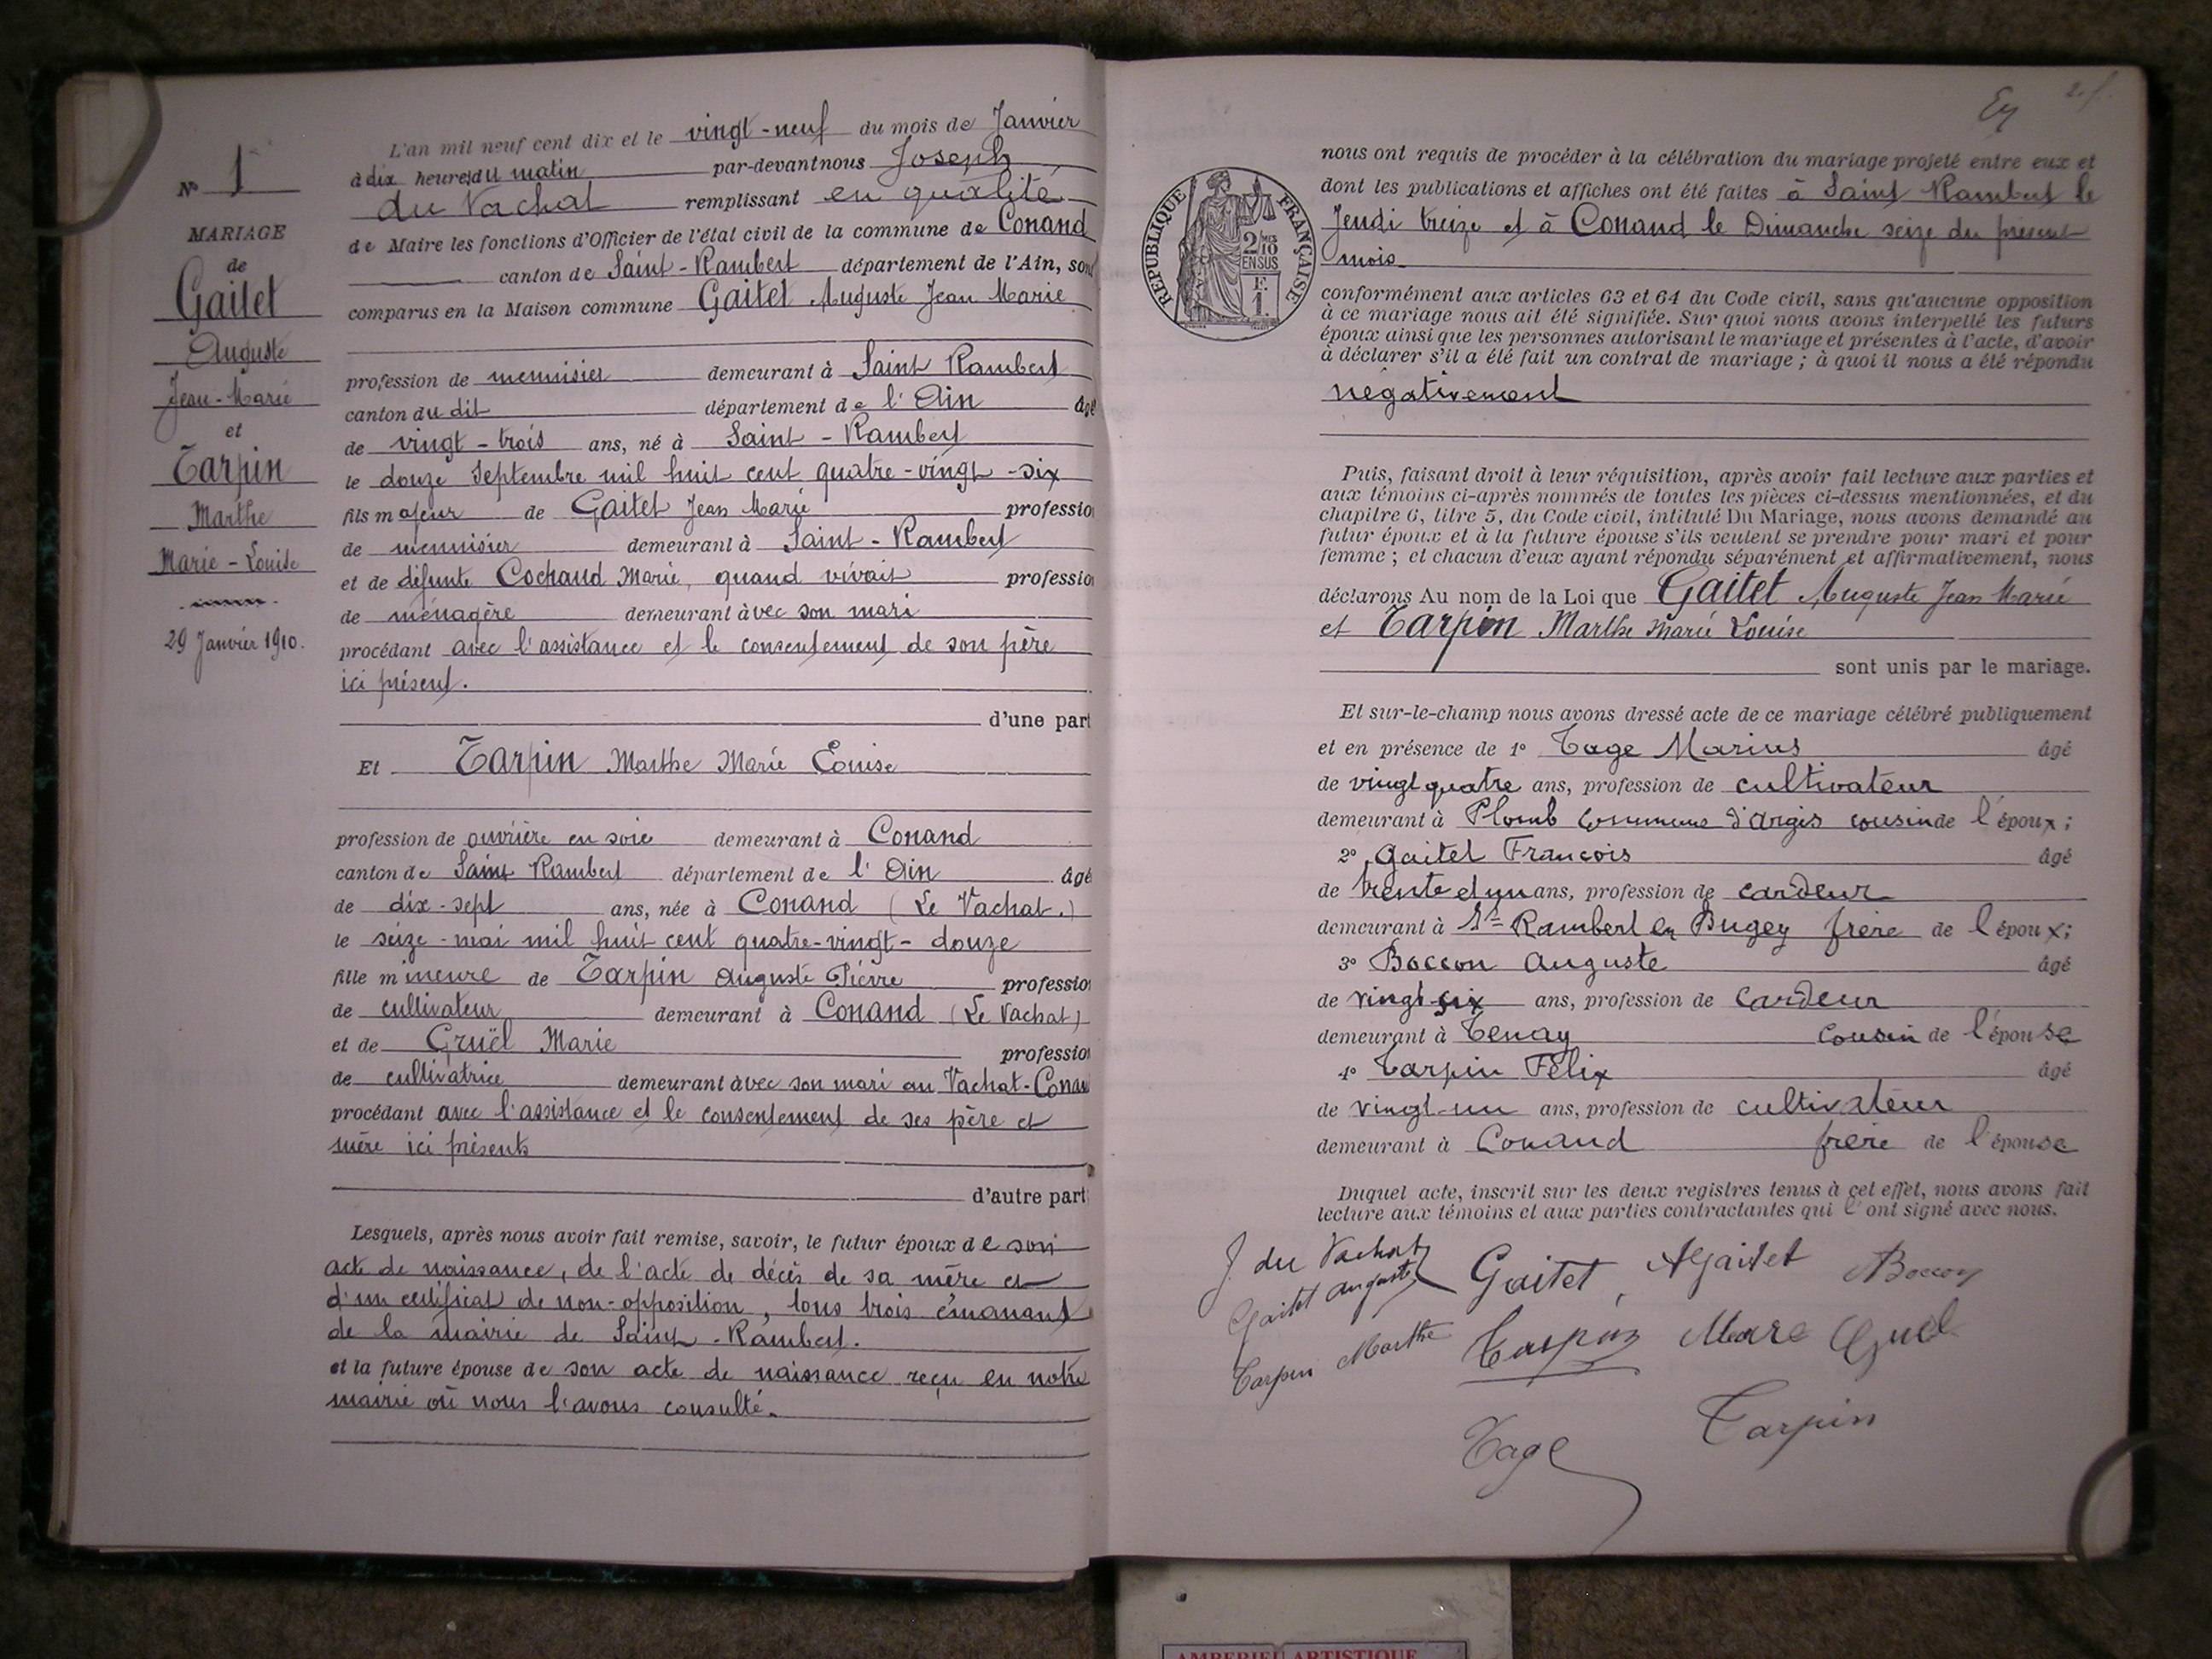 N° 1
MARIAGE
de
Gaitet
Auguste
Jean-Marie
et
Tarpin
Marthe
Marie-Louise
29 Janvier 1910.
L'an mil neuf cent dix et le vingt-neuf du mois de Janvier
à dix heures du matin par-devant nous Joseph
du Vachat remplissant en qualité
de Maire les fonctions d'Officier de l'état civil de la commune de Conand
canton de Saint-Rambert département de l'Ain, sont
comparus en la Maison commune Gaitet Auguste Jean Marie
profession de menuisier demeurant à Saint Rambert
canton du dit département de l'Ain âgé
de vingt-trois ans, né à Saint-Rambert
le douze Septembre mil huit cent quatre-vingt-six
fils majeur de Gaitet Jean Marie profession
de menuisier demeurant à Saint-Rambert
et de défunte Cochand Marie, quand vivait profession
de ménagère demeurant avec son mari
procédant avec l'assistance et le consentement de son père
ici présent.
d'une part
Et Tarpin Marthe Marie Louise
profession de ouvrière en soie demeurant à Conand
canton de Saint Rambert département de l'Ain âgé
de dix-sept ans, née à Conand (Le Vachat.)
le seize-mai mil huit cent quatre-vingt-douze
fille mineure de Tarpin Auguste Pierre profession
de cultivateur demeurant à Conand (Le Vachat)
et de Gruël Marie profession
de cultivatrice demeurant avec son mari au Vachat-Conand
procédant avec l'assistance et le consentement de ses père et
mère ici présents
d'autre part
Lesquels, après nous avoir fait remise, savoir, le futur époux de son
acte de naissance, de l'acte de décès de sa mère et
d'un certificat de non-opposition, tous trois émanant
de la mairie de Saint-Rambert.
et la future épouse de son acte de naissance reçu en notre
mairie où nous l'avons consulté.
RÉPUBLIQUE FRANÇAISE
2/10 MES
EN SUS
F.
1.
nous ont requis de procéder à la célébration du mariage projeté entre eux et
dont les publications et affiches ont été faites à Saint Rambert le
Jeudi treize et à Conand le Dimanche seize du présent
mois
conformément aux articles 63 et 64 du Code civil, sans qu'aucune opposition
à ce mariage nous ait été signifiée. Sur quoi nous avons interpellé les futurs
époux ainsi que les personnes autorisant le mariage et présentes à l'acte, d'avoir
à déclarer s'il a été fait un contrat de mariage ; à quoi il nous a été répondu
négativement
Puis, faisant droit à leur réquisition, après avoir fait lecture aux parties et
aux témoins ci-après nommés de toutes les pièces ci-dessus mentionnées, et du
chapitre 6, titre 5, du Code civil, intitulé Du Mariage, nous avons demandé au
futur époux et à la future épouse s'ils veulent se prendre pour mari et pour
femme ; et chacun d'eux ayant répondu séparément et affirmativement, nous
déclarons Au nom de la Loi que Gaitet Auguste Jean Marie
et Tarpin Marthe Marie Louise
sont unis par le mariage.
Et sur-le-champ nous avons dressé acte de ce mariage célébré publiquement
et en présence de 1° Tage Marius âgé
de vingt quatre ans, profession de cultivateur
demeurant à Plomb Commune d'Argis cousin de l'époux ;
2° Gaitet François âgé
de trente et un ans, profession de cardeur
demeurant à St Rambert en Bugey frère de l'époux ;
3° Boccon Auguste âgé
de vingt-six ans, profession de cardeur
demeurant à Tenay cousin de l'épouse
4° Tarpin Félix âgé
de vingt-un ans, profession de cultivateur
demeurant à Conand frère de l'épouse
Duquel acte, inscrit sur les deux registres tenus à cet effet, nous avons fait
lecture aux témoins et aux parties contractantes qui l'ont signé avec nous.
J. du Vachat
Gaitet Auguste Gaitet, A Gaitet Boccon
Tarpin Marthe Tarpin
Tage Tarpin
AMBERIEU ARTISTIQUE